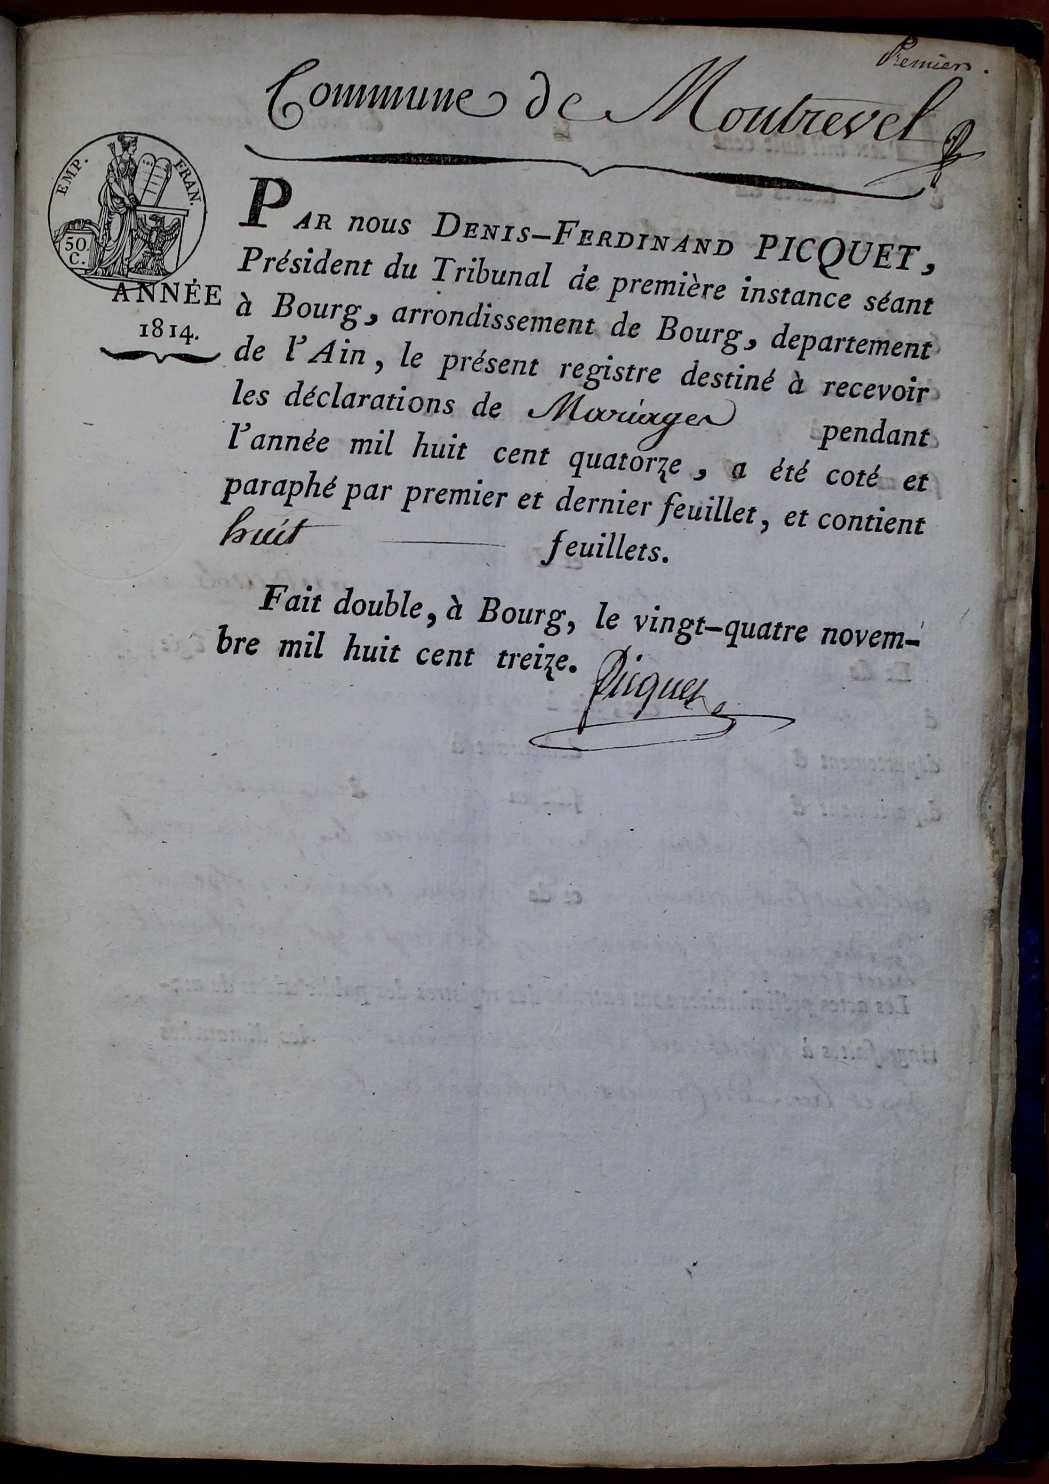 Premier.
Commune de Montrevel
EMP. FRAN.
50.
C.
ANNÉE
1814.
PAR nous DENIS-FERDINAND PICQUET,
Président du Tribunal de première instance séant
à Bourg, arrondissement de Bourg, departement
de l'Ain, le présent registre destiné à recevoir
les déclarations de Mariages pendant
l'année mil huit cent quatorze, a été coté et
paraphé par premier et dernier feuillet, et contient
huit feuillets.
Fait double, à Bourg, le vingt-quatre novem-
bre mil huit cent treize.
Picquet